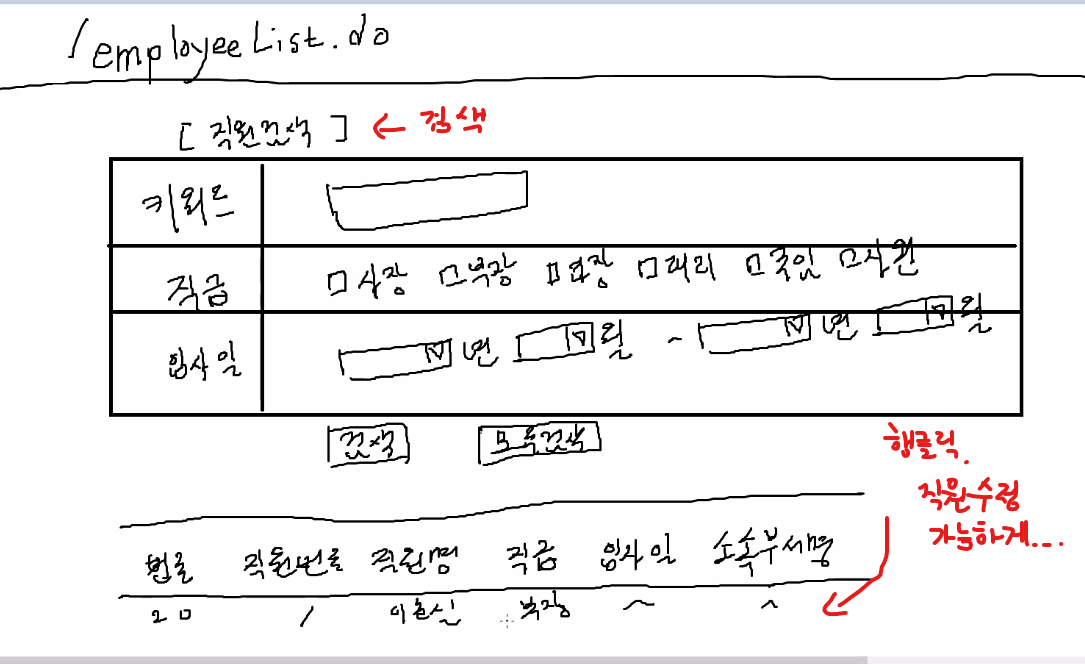 /employeeList.do
[ 직원검색 ] ← 검색
키워드
직급 □사장 □부장 □과장 □대리 □주임 □사원
입사일 년 월 ~ 년 월
검색 모두검색
행클릭.
직원수정
가능하게...
번호 직원번호 직원명 직급 입사일 소속부서명
20 1 이순신 부장 ~ ^